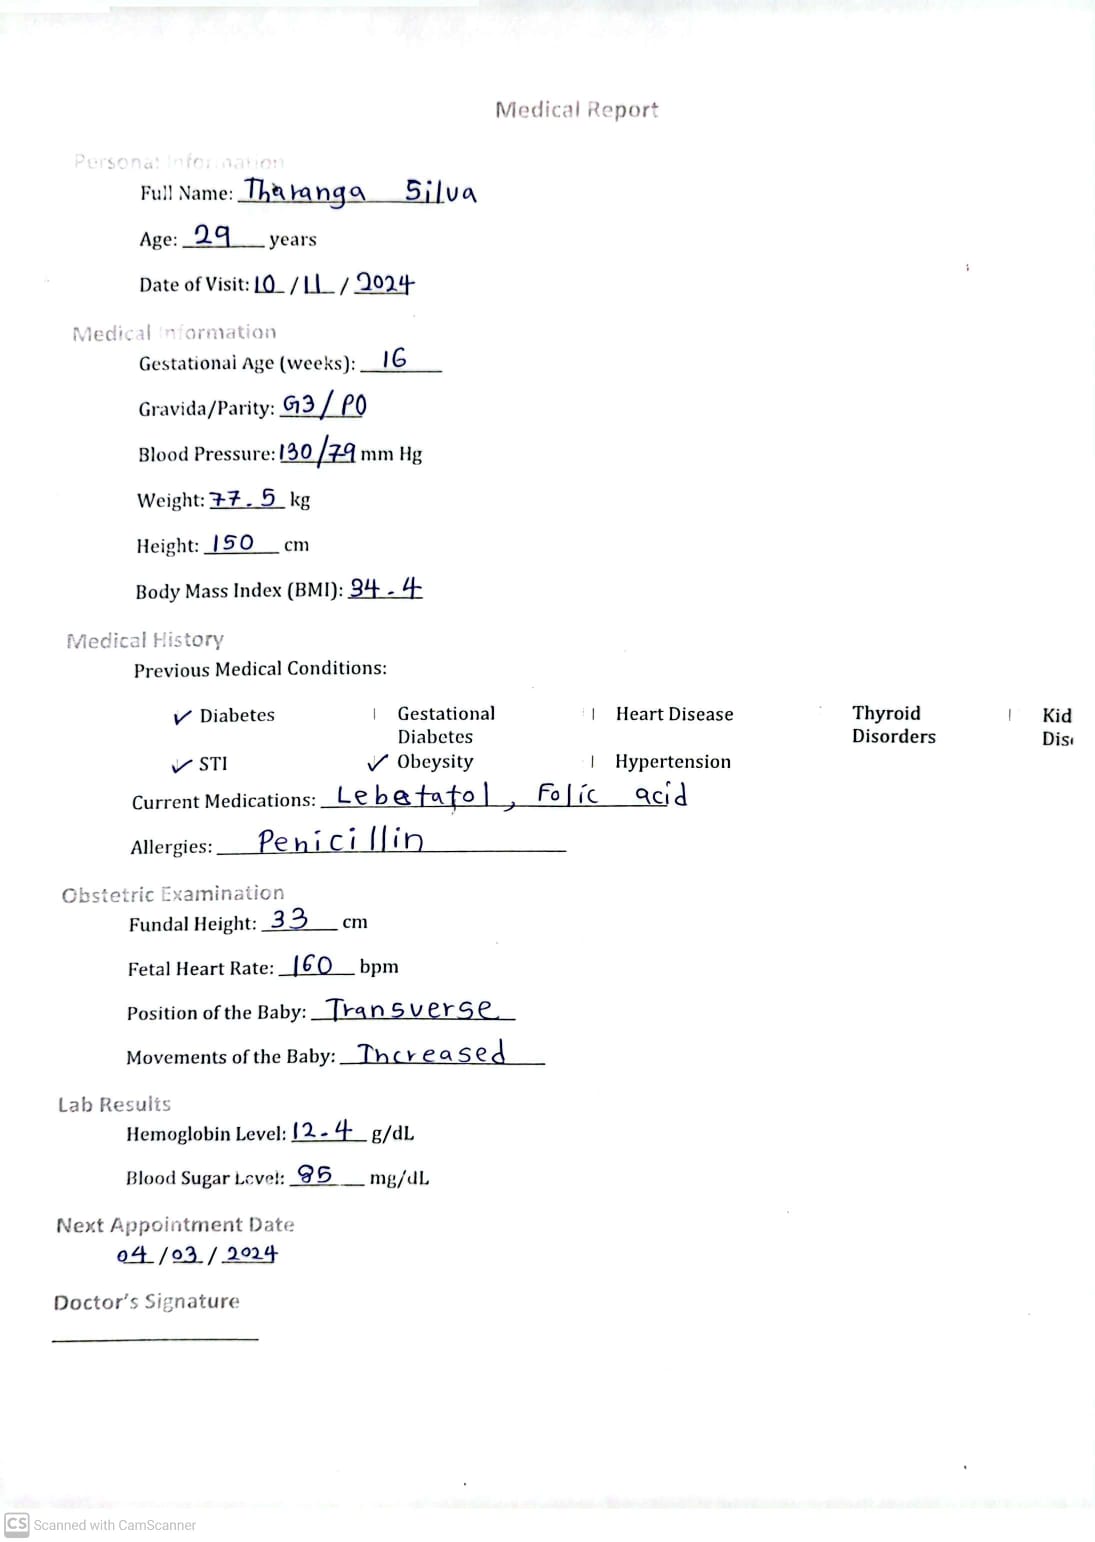 Medical Report
Personal Information
Full Name: Tharanga Silva
Age: 29 years
Date of Visit: 10 / 11 / 2024
Medical Information
Gestational Age (weeks): 16
Gravida/Parity: G3 / P0
Blood Pressure: 130 / 79 mm Hg
Weight: 77.5 kg
Height: 150 cm
Body Mass Index (BMI): 34.4
Medical History
Previous Medical Conditions:
✓ Diabetes Gestational Diabetes Heart Disease Thyroid Disorders Kid Dis
✓ STI ✓ Obeysity Hypertension
Current Medications: Lebetatol, Folic acid
Allergies: Penicillin
Obstetric Examination
Fundal Height: 33 cm
Fetal Heart Rate: 160 bpm
Position of the Baby: Transverse
Movements of the Baby: Increased
Lab Results
Hemoglobin Level: 12.4 g/dL
Blood Sugar Level: 95 mg/dL
Next Appointment Date
04 / 03 / 2024
Doctor's Signature
CS Scanned with CamScanner